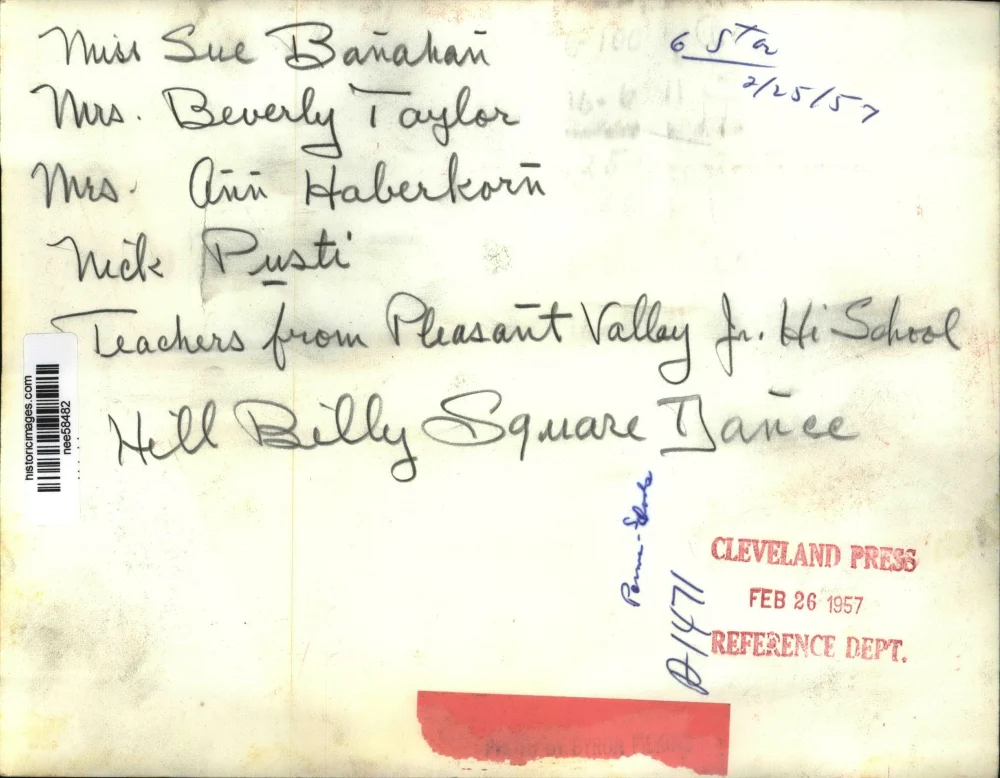 Miss Sue Banahan
6 Sta
2/25/57
Mrs. Beverly Taylor
Mrs. Ann Haberkorn
Nick Pusti
Teachers from Pleasant Valley Jr. Hi School
Hill Billy Square Dance
historicimages.com
nee58482
A1471
CLEVELAND PRESS
FEB 26 1957
REFERENCE DEPT.
PHOTO BY BYRON FILKINS